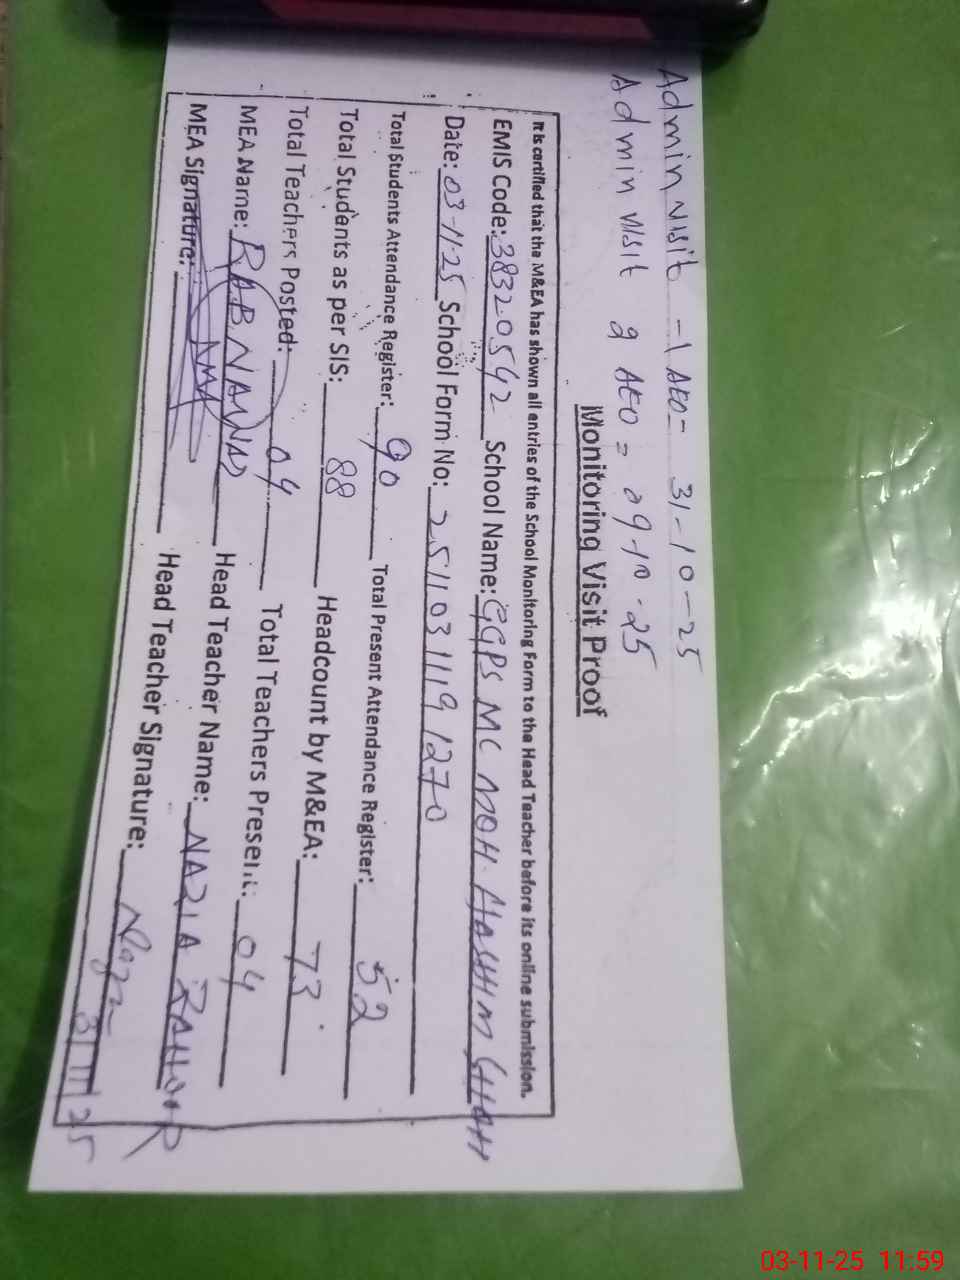 Admin visit - 1 AEO - 31-10-25
Admin visit 2 AEO = 09-10-25
Monitoring Visit Proof
It is certified that the M&EA has shown all entries of the School Monitoring Form to the Head Teacher before its online submission.
EMIS Code: 38320542 School Name: GGPS MC MOH. HASHIM SHAH
Date: 03-11-25 School Form No: 25110311191270
Total Students Attendance Register: 90 Total Present Attendance Register: 52
Total Students as per SIS: 88 Headcount by M&EA: 73
Total Teachers Posted: 04 Total Teachers Present: 04
MEA Name: RAB NAWAZ Head Teacher Name: NAZIA
MEA Signature: Head Teacher Signature:
3/11/25
03-11-25 11:59